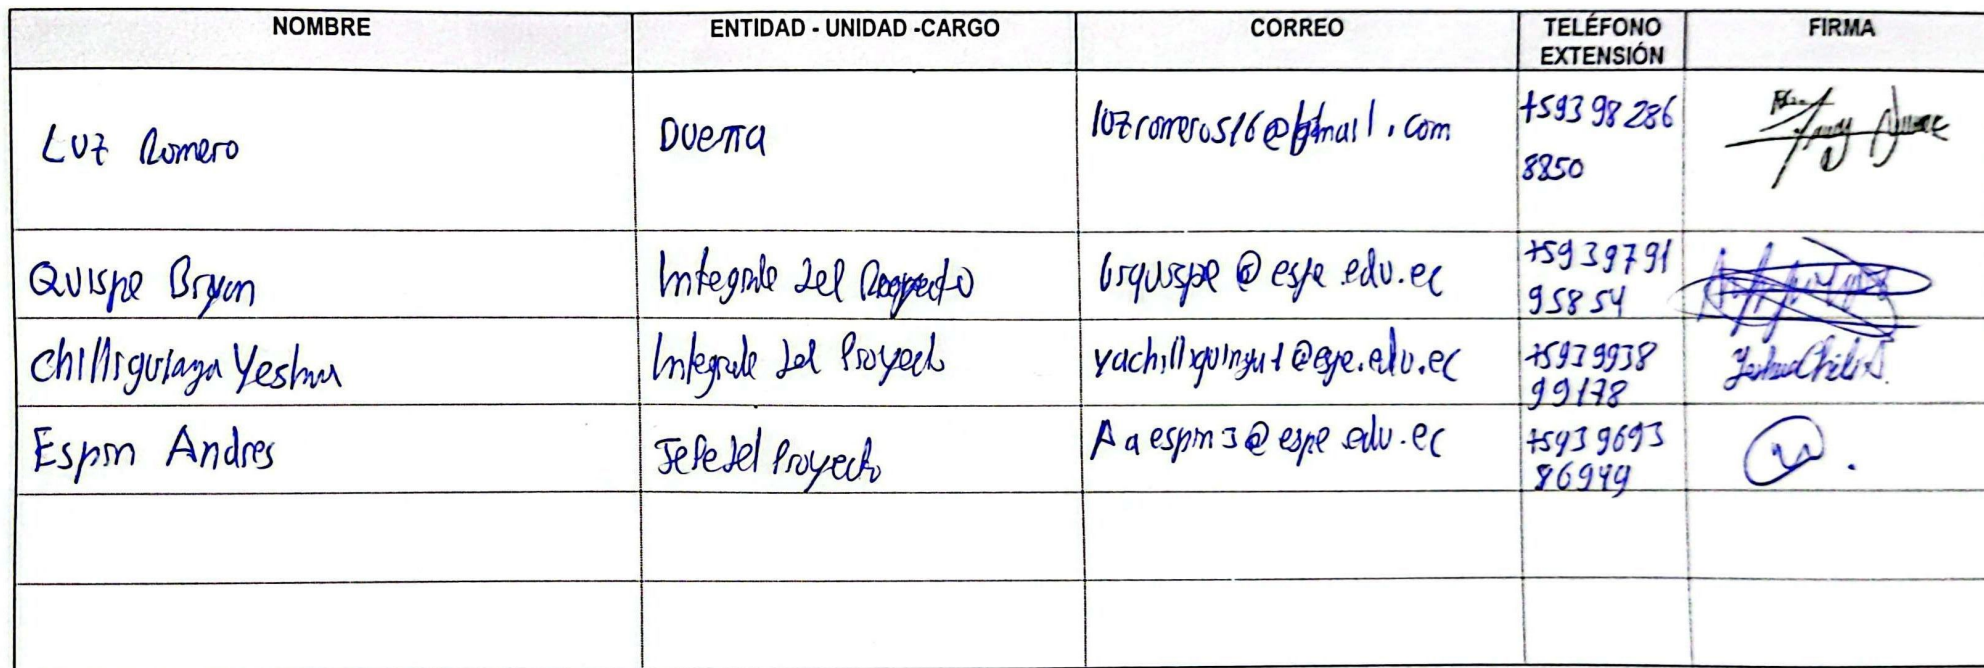 NOMBRE ENTIDAD - UNIDAD -CARGO CORREO TELÉFONO EXTENSIÓN FIRMA
Luz Romero Dueña luzromero516@gmail.com +593 98 286 8850
Quispe Bryan Integrante del Proyecto brquispe@espe.edu.ec +59 39791 95854
Chilliquinga Yeshua Integrante del Proyecto yachilliquinga1@espe.edu.ec +593 9938 99178 Yeshua
Espin Andres Jefe del Proyecto Aaespin3@espe.edu.ec +593 9693 86949